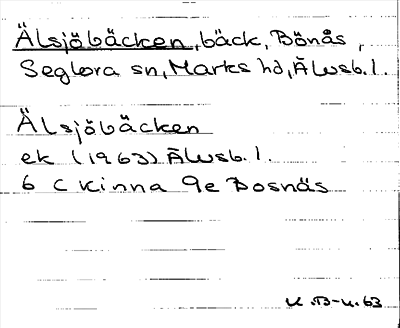 Älsjöbäcken, bäck, Bönås,
Seglora sn, Marks hd, Älvsb. l.
Älsjöbäcken
ek (1963) Älvsb. l.
6 C Kinna 9e Bosnäs